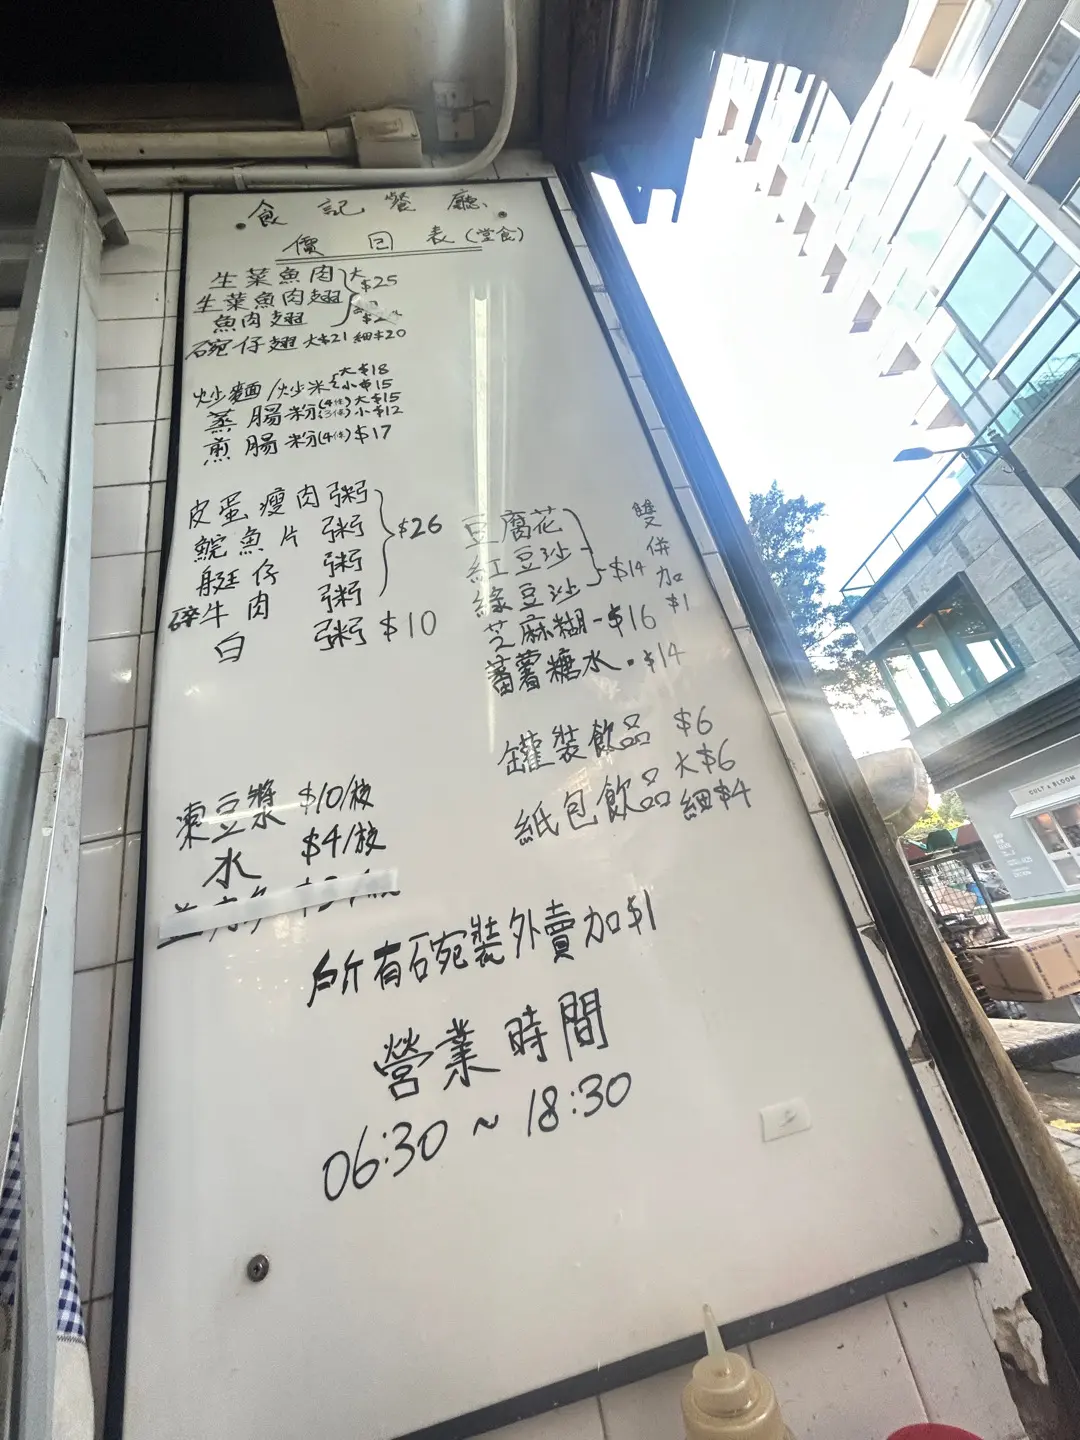 食記餐廳
價目表(堂食)
生菜魚肉 大 $25
生菜魚肉翅
魚肉翅
碗仔翅 大$21 細$20
炒麵/炒米 大$18 小$15
蒸腸粉(4件)大$15 (3件)小$12
煎腸粉(4件)$17
皮蛋瘦肉粥
鯇魚片粥
艇仔粥
碎牛肉粥
$26
白粥 $10
豆腐花
紅豆沙
綠豆沙
$14
雙併加$1
芝麻糊-$16
蕃薯糖水.$14
罐裝飲品 $6
紙包飲品 大$6 細$4
凍豆漿 $10/枝
水 $4/枝
所有碗裝外賣加$1
營業時間
06:30~18:30
CULT & BLOOM